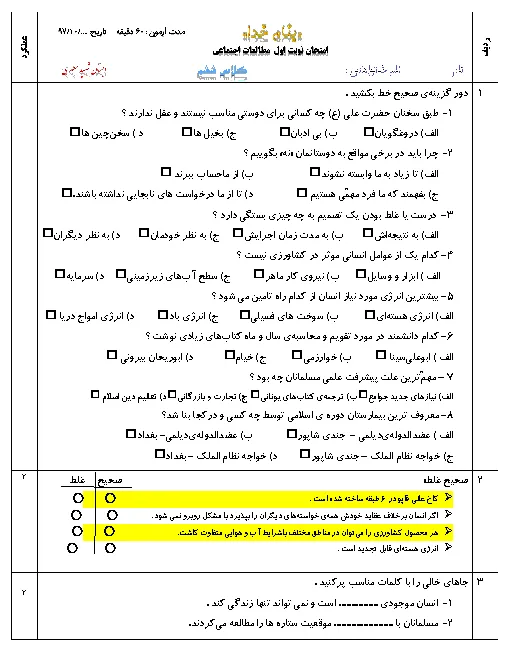 به نام خدا
مدت آزمون : ۶۰ دقیقه تاریخ: .../۹۷/۱۰
امتحان نوبت اول مطالعات اجتماعی
ردیف
عملکرد
نام
نام خانوادگی :
کلاس ششم
۱ دور گزینه‌ی صحیح خط بکشید .
۱- طبق سخنان حضرت علی (ع) چه کسانی برای دوستی مناسب نیستند و عقل ندارند ؟
الف) دروغگویان ب) بی ادبان ج) بخیل ها د ) سخن‌چین ها
۲- چرا باید در برخی مواقع به دوستانمان «نه» بگوییم ؟
الف) تا زیاد به ما وابسته نشوند ب) از ماحساب ببرند
ج) بفهمند که ما فرد مهمّی هستیم د) تا از ما درخواست های نابجایی نداشته باشند.
۳- درست یا غلط بودن یک تصمیم به چه چیزی بستگی دارد ؟
الف) به نتیجه‌اش ب) به مدت زمان اجرایش ج) به نظر خودمان د) به نظر دیگران
۴- کدام یک از عوامل انسانی موثر در کشاورزی نیست ؟
الف ) ابزار و وسایل ب) نیروی کار ماهر ج) سطح آب‌های زیرزمینی د) سرمایه
۵- بیشترین انرژی مورد نیاز انسان از کدام راه تامین می شود ؟
الف) انرژی هسته‌ای ب) سوخت های فسیلی ج) انرژی باد د) انرژی امواج دریا
۶- کدام دانشمند در مورد تقویم و محاسبه‌ی سال و ماه کتاب‌های زیادی نوشت ؟
الف ) ابوعلی‌سینا ب) خوارزمی ج) خیام د) ابوریحان بیرونی
۷- مهمّ ترین علت پیشرفت علمی مسلمانان چه بود ؟
الف) نیازهای جدید جوامع ب) ترجمه‌ی کتاب‌های یونانی ج) تجارت و بازرگانی د) تعالیم دین اسلام
۸- معروف ترین بیمارستان دوره ی اسلامی توسط چه کسی و در کجا بنا شد؟
الف ) عضدالدوله‌ی‌دیلمی - جندی شاپور ب) عضدالدوله‌ی‌دیلمی- بغداد
ج) خواجه نظام الملک - جندی شاپور د) خواجه نظام الملک - بغداد
۲ صحیح غلط: صحیح غلط ۲
کاخ عالی قاپودر ۶ طبقه ساخته شده است .
اگر انسان برخلاف عقاید خودش همه‌ی خواسته‌های دیگران را بپذیرد با مشکل روبرو نمی شود.
هر محصول کشاورزی را می‌توان در مناطق مختلف باشرایط آب و هوایی متفاوت کاشت.
انرژی هسته‌ای قابل تجدید است .
۳ جاهای خالی را با کلمات مناسب پر کنید .
۲
۱- انسان موجودی .......... است و نمی تواند تنها زندگی کند .
۲- مسلمانان با ............... موقعیت ستاره ها را مطالعه می‌کردند.